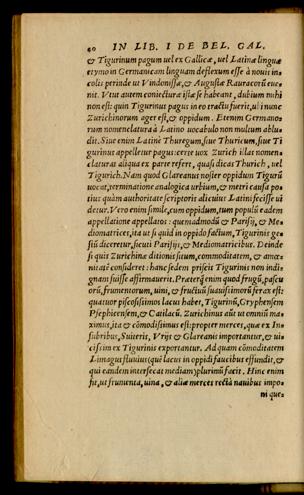 40 IN LIB. I DE BEL. GAL.
& Tigurinum pagum uel ex Gallicæ, uel Latinæ linguæ
etymo in Germanicam linguam deflexum esse à nouis in
colis perinde ut Vindonissæ, & Augustæ Rauracorũ eue
nit. Vtut autem coniecturæ istæ se habeant, dubium mihi
non est: quin Tigurinus pagus in eo tractu fuerit, ubi nunc
Zurichinorum ager est, & oppidum. Etenim Germano
rum nomenclatura à Latino uocabulo non multum ablu
dit. Siue enim Latini Thuregum, siue Thuricum, siue Ti
gurinus appelletur pagus certe uox Zurich illæ nomen
claturas aliqua ex parte refert, quasi dicas Thurich, uel
Tigurich. Nam quod Glareanus noster oppidum Tigurũ
uocat, terminatione analogica urbium, & metri causa po
tius quàm authoritate scriptoris alicuius Latini fecisse ui
detur. Vero enim simile, cum oppidum, tum populũ eadem
appellatione appellatos: quemadmodũ & Parisij, & Me
diomatrices, ita ut si quid in oppido factum, Tigurinis ge
stũ diceretur, sicuti Parisijs, & Mediomatricibus. Deinde
si quis Zurichinæ ditionis situm, commoditatem, & amœ
nitatẽ consideret: hanc sedem priscis Tigurinis non indi
gnam fuisse affirmauerit. Præterq̃ enim quod frugũ, pascu
orũ, frumentorum, uini, & fructuũ suauissimorũ ferax est:
quatuor piscosissimos lacus habet, Tigurinũ, Gryphensem
Psephicensem, & Catilacũ. Zurichinus aũt ut omniũ ma
ximus, ita & cõmodissimus est: propter merces, quæ ex In
subribus, Suiteris, Vrijs & Glareanis importantur, & ui
cissim ex Tigurinis exportantur. Ad quam cõmoditatem
Limagus fluuius (qui lacus in oppidi faucibus effundit, &
qui eandem intersecat mediam) plurimũ facit. Hinc enim
fit, ut frumenta, uina, & aliæ merces rectà nauibus impo
ni que-